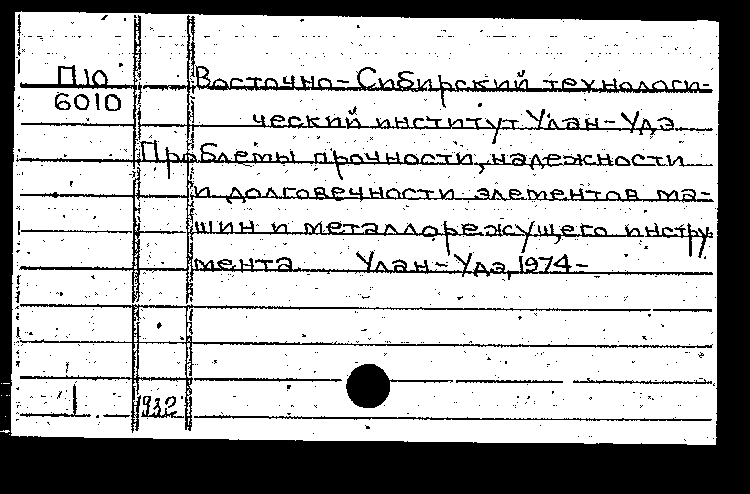 П10 Восточно-Сибирский технологи-
6010
ческий институт Улан-Удэ
Проблемы прочности, надежности
и долговечности элементов ма-
шин и металлорежущего инстру
мента Улан-Удэ, 1974-
1932